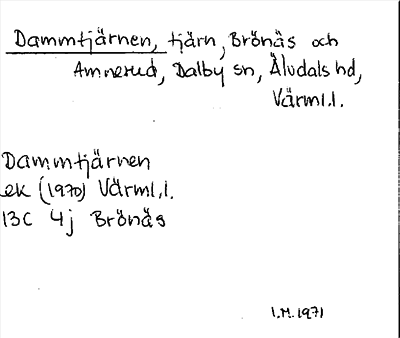 Dammtjärnen, tjärn, Brönäs och
Amnerud, Dalby sn, Älvdals hd,
Värml.l.
Dammtjärnen
ek (1970) Värml.l.
13C 4j Brönäs
I.M. 1971